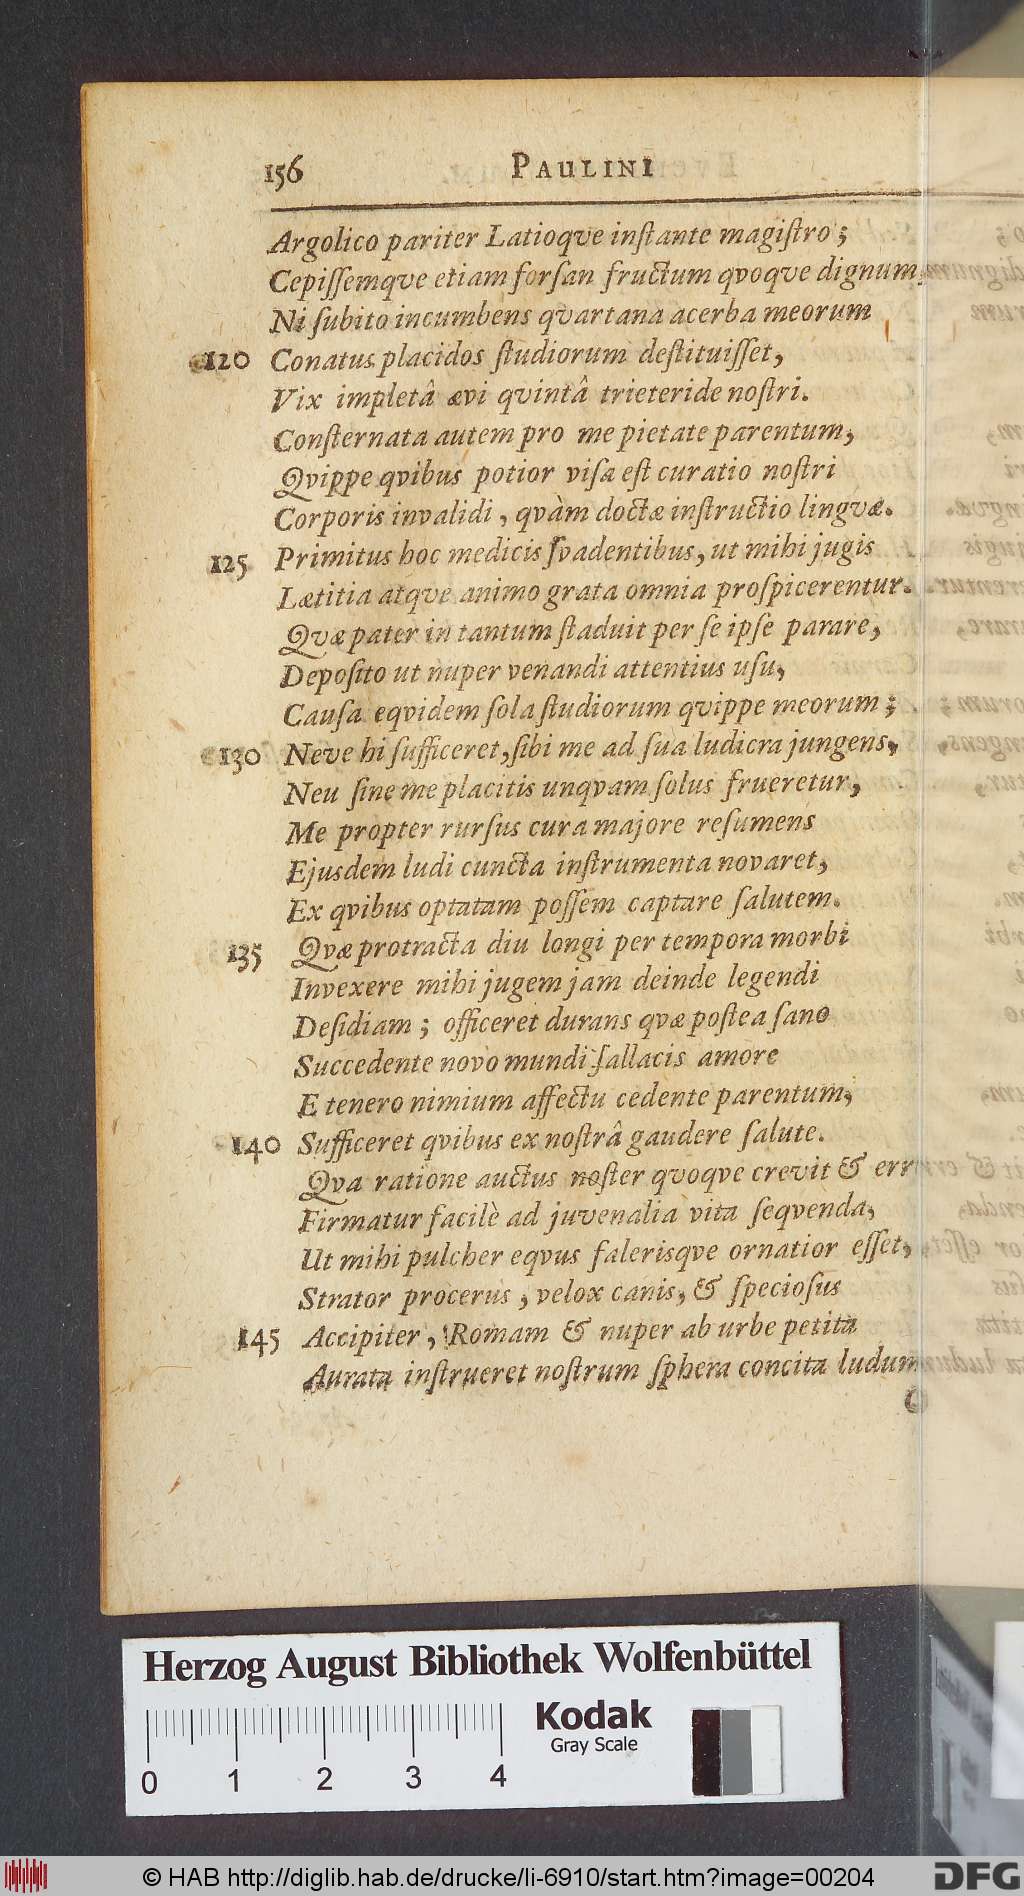 156 PAULINI
Argolico pariter Latioqve inſtante magiſtro;
Cepiſſemqve etiam forſan fructum qvoqve dignum,
Ni ſubito incumbens qvartana acerba meorum
120 Conatus placidos ſtudiorum deſtituiſſet,
Vix impletâ ævi qvintâ trieteride noſtri.
Conſternata autem pro me pietate parentum,
Qvippe qvibus potior viſa eſt curatio noſtri
Corporis invalidi, qvàm doctæ inſtructio lingvæ.
125 Primitus hoc medicis ſvadentibus, ut mihi jugis
Lætitia atqve animo grata omnia proſpicerentur.
Qvæ pater in tantum ſtaduit per ſe ipſe parare,
Depoſito ut nuper venandi attentius uſu,
Cauſa eqvidem ſola ſtudiorum qvippe meorum;
130 Neve hi ſufficeret, ſibi me ad ſua ludicra jungens,
Neu ſine me placitis unqvam ſolus frueretur,
Me propter rurſus cura majore reſumens
Ejusdem ludi cuncta inſtrumenta novaret,
Ex qvibus optatam poſſem captare ſalutem.
135 Qvæ protracta diu longi per tempora morbi
Invexere mihi jugem jam deinde legendi
Deſidiam; officeret durans qvæ poſtea ſano
Succedente novo mundi fallacis amore
E tenero nimium affectu cedente parentum,
140 Sufficeret qvibus ex noſtrâ gaudere ſalute.
Qva ratione auctus noſter qvoqve crevit & err
Firmatur facilè ad juvenalia vita ſeqvenda,
Ut mihi pulcher eqvus falerisqve ornatior eſſet,
Strator procerus, velox canis, & ſpecioſus
145 Accipiter, Romam & nuper ab urbe petita
Aurata inſtrueret noſtrum ſphera concita ludum
Herzog August Bibliothek Wolfenbüttel
0 1 2 3 4
Kodak
Gray Scale
© HAB http://diglib.hab.de/drucke/li-6910/start.htm?image=00204
DFG